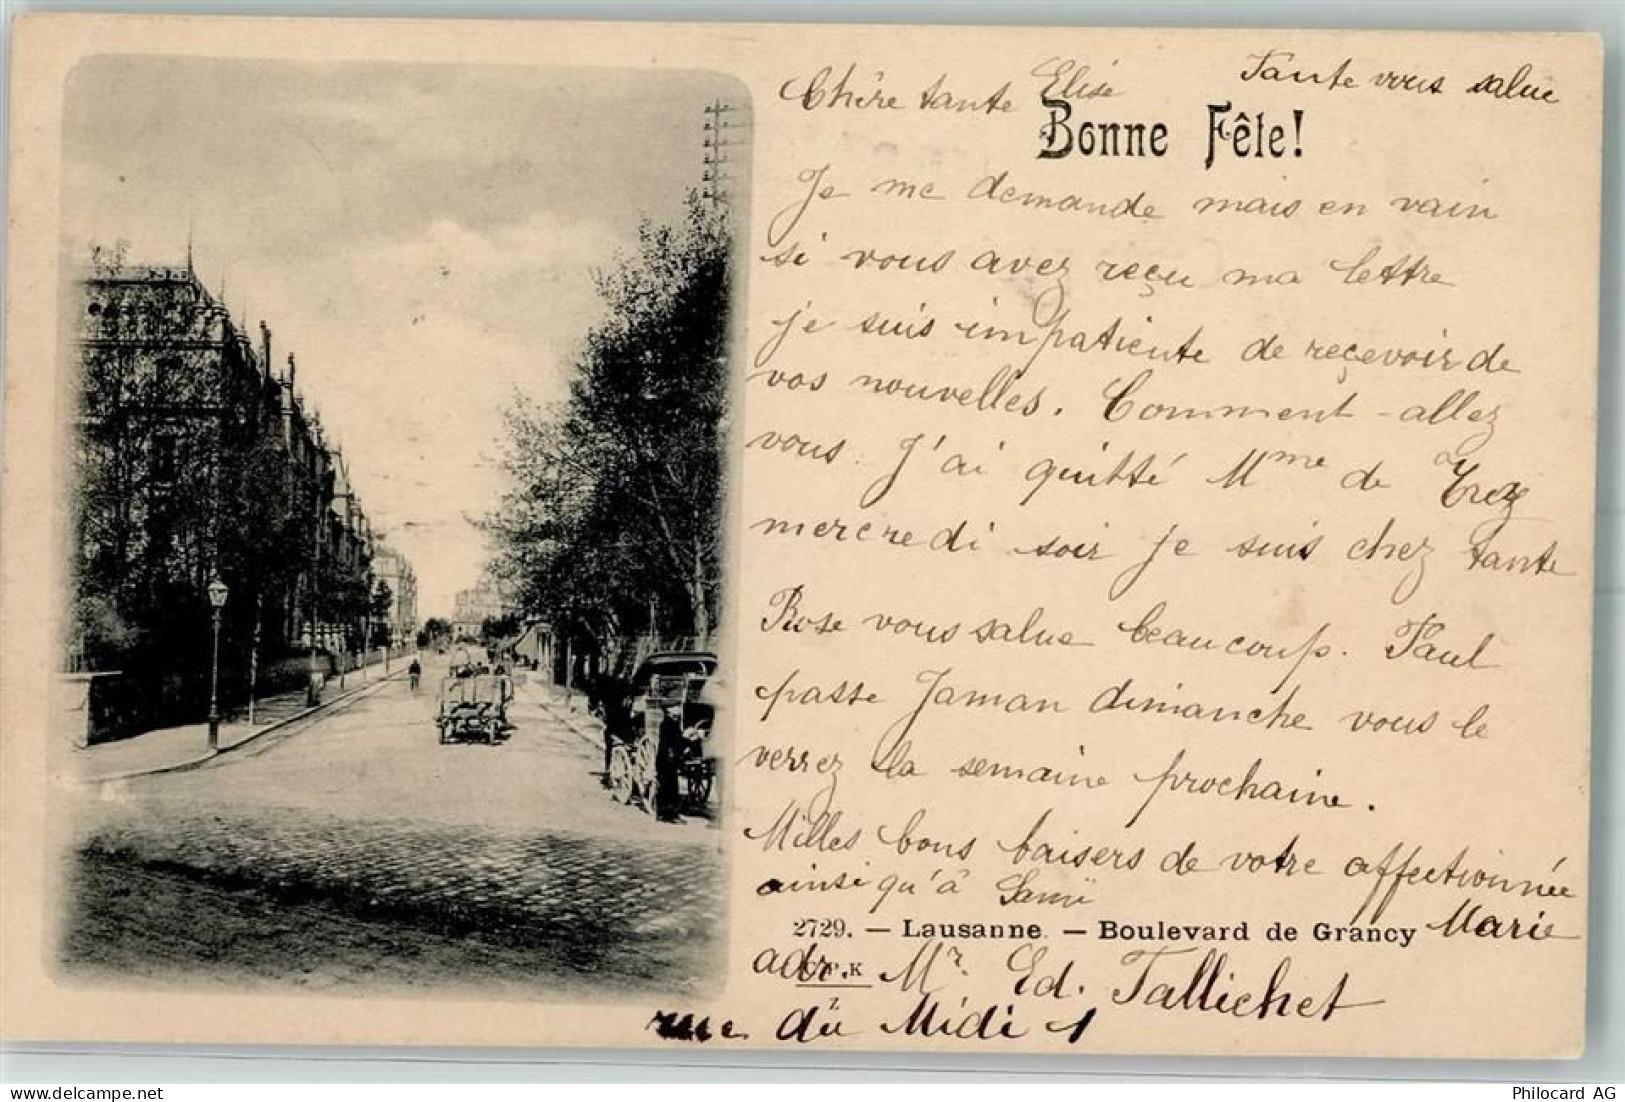 Tante vous salue
Chère tante Elise
Bonne Fête!
Je me demande mais en vain
si vous avez reçu ma lettre
je suis impatiente de reçevoir de
vos nouvelles. Comment-allez
vous. J'ai quitté Mme de
mercredi soir je suis chez tante
Rose vous salue beaucoup. Paul
passe Jaman dimanche vous le
verrez la semaine prochaine.
Milles bons baisers de votre affectionnée
ainsi qu'à
Marie
2729. — Lausanne. — Boulevard de Grancy
adr. Mr. Ed. Tallichet
rue du Midi 1
Philocard AG